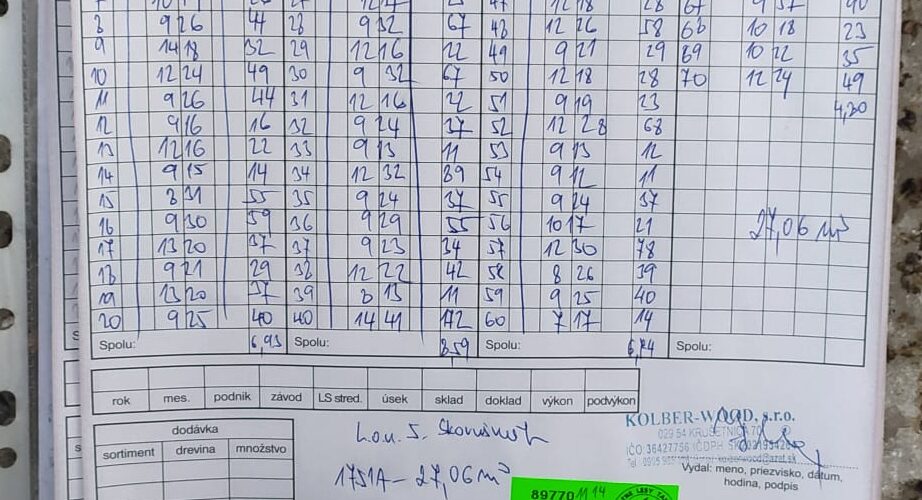 8 9 26 44 28 9 32 67 48 12 26 58 68 10 18 23
9 14 18 32 29 12 16 22 49 9 21 29 69 10 22 35
10 12 24 49 30 9 32 67 50 12 18 28 70 12 24 49
11 9 26 44 31 12 16 22 51 9 19 23 4,80
12 9 16 16 32 9 24 37 52 12 28 68
13 12 16 22 33 9 13 11 53 9 13 12
14 9 15 14 34 12 32 89 54 9 12 11
15 8 31 55 35 9 24 37 55 9 24 37
16 9 30 59 36 9 29 55 56 10 17 21 27,06 m³
17 13 20 37 37 9 23 34 57 12 30 78
18 9 21 29 38 12 22 42 58 8 26 39
19 13 20 37 39 8 13 11 59 9 25 40
20 9 25 40 40 14 41 172 60 7 17 14
Spolu: 6,93 Spolu: 8,59 Spolu: 6,74 Spolu:
rok mes. podnik závod LS stred. úsek sklad doklad výkon podvýkon
dodávka
sortiment drevina množstvo
1751A - 27,06 m³
KOLBER-WOOD, s.r.o.
029 54 KRUŠETNICA 70
IČO 36427756 IČDPH
Vydal: meno, priezvisko, dátum,
hodina, podpis
89770 11 14